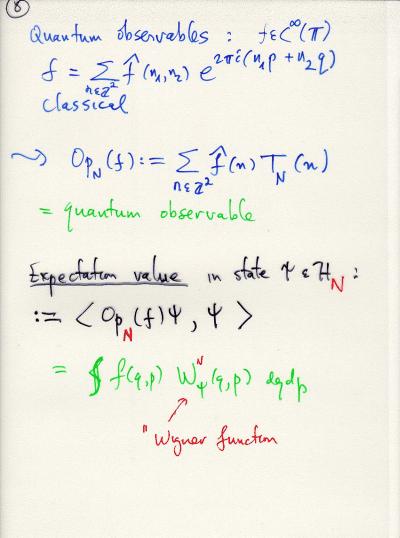 8
Quantum observables : f ∈ C^∞(Π)
f = Σ_{n∈ℤ²} f̂(n₁,n₂) e^{2πi(n₁p + n₂q)}
classical
⇝ Op_N(f) := Σ_{n∈ℤ²} f̂(n) T_N(n)
= quantum observable
Expectation value in state Ψ ∈ H_N :
:= < Op_N(f)Ψ , Ψ >
= ∫ f(q,p) W_Ψ^N(q,p) dqdp
"Wigner function